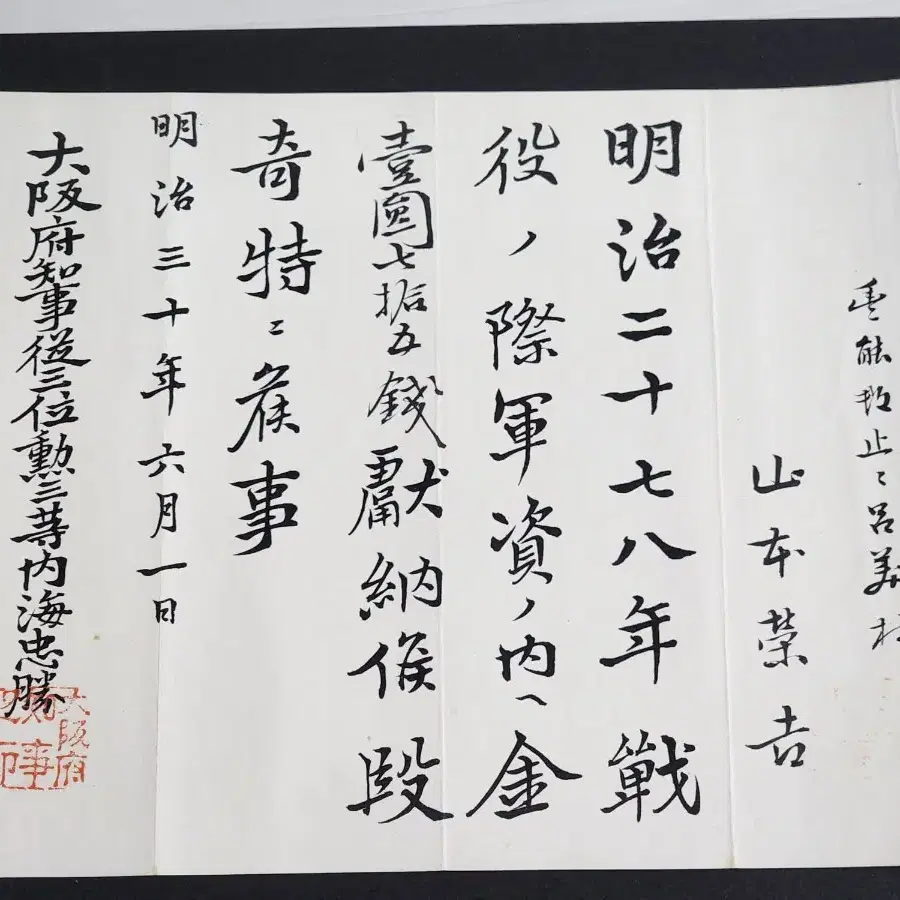 豊能郡止〻呂美村
山本榮吉
明治二十七八年戰
役ノ際軍資ノ内ヘ金
壹圓七拾五錢獻納候段
奇特ニ候事
明治三十年六月一日
大阪府知事從三位勲三等内海忠勝
大阪府
知事
之印